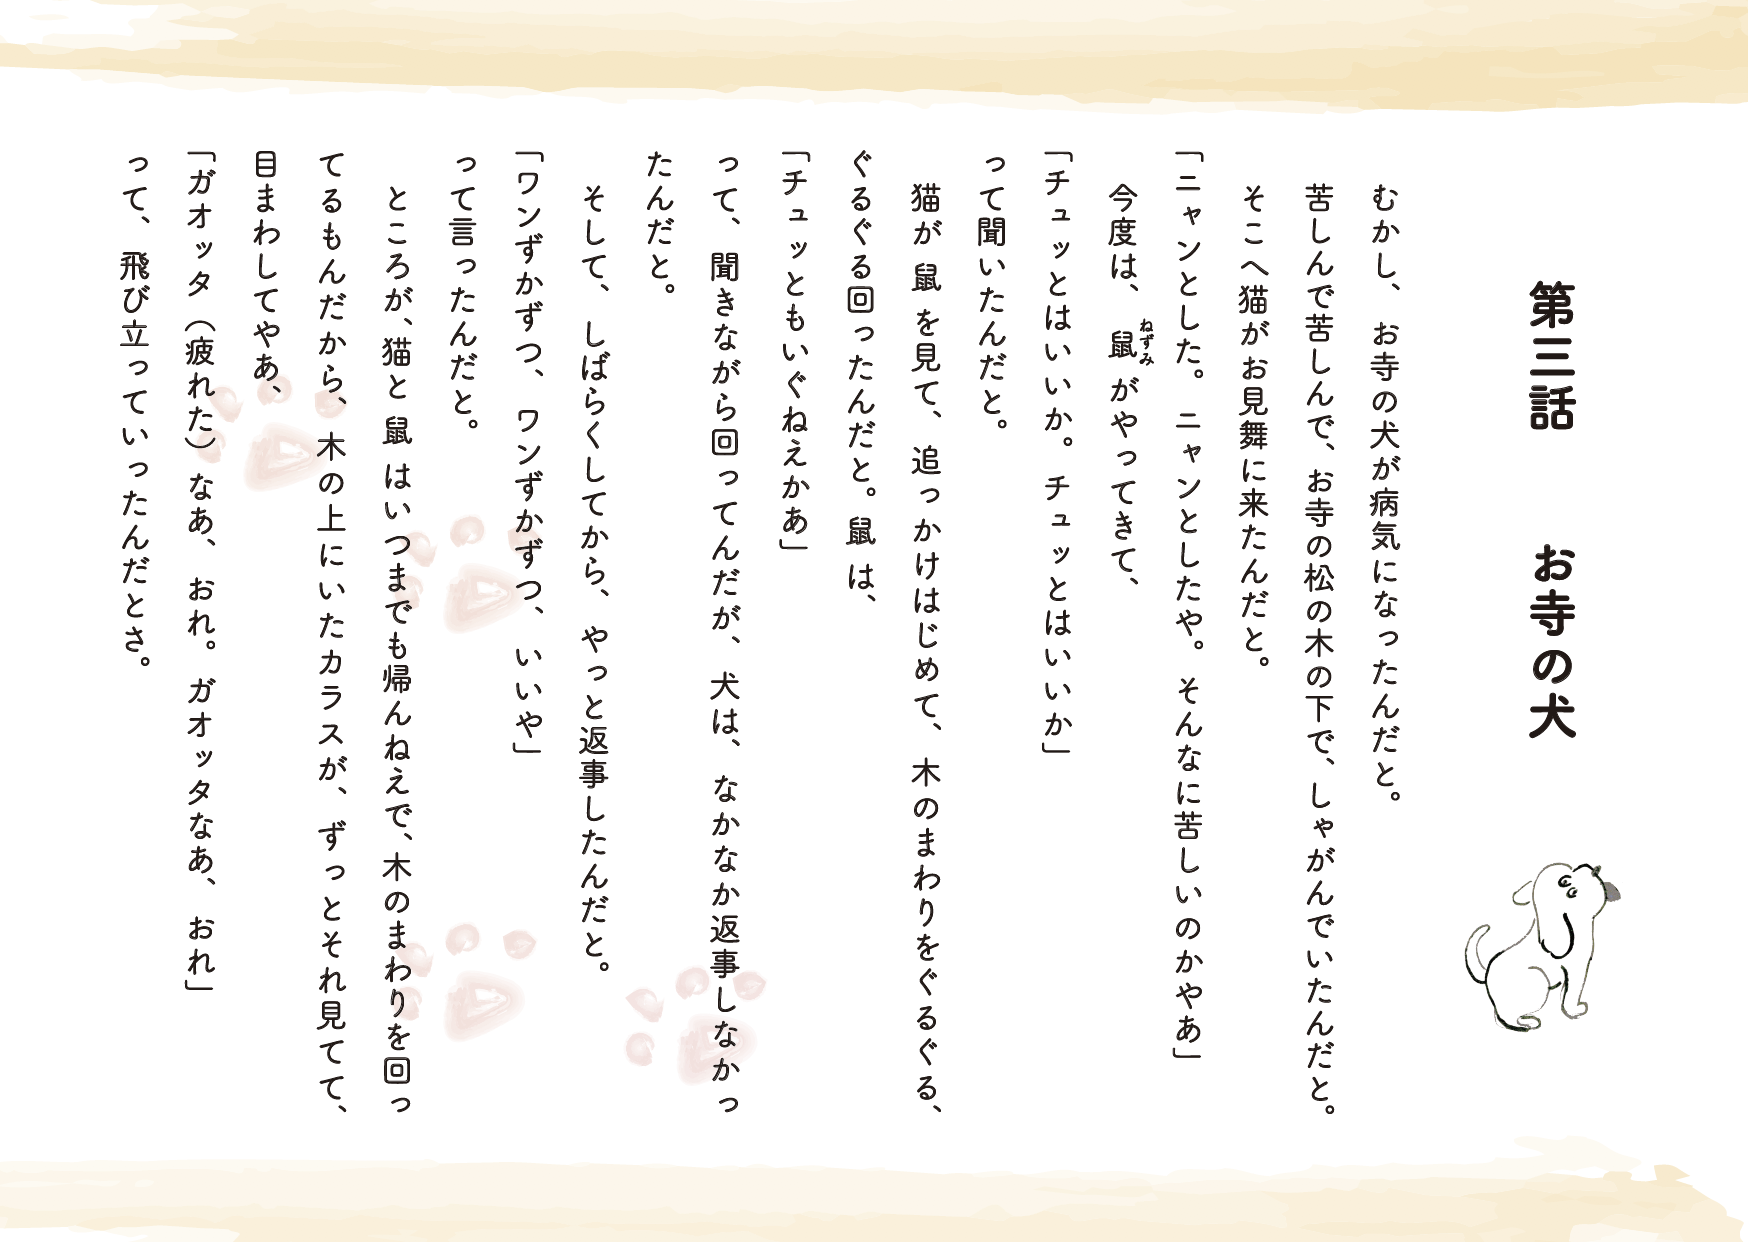 第三話　お寺の犬
むかし、お寺の犬が病気になったんだと。
苦しんで苦しんで、お寺の松の木の下で、しゃがんでいたんだと。
そこへ猫がお見舞に来たんだと。
「ニャンとした。ニャンとしたや。そんなに苦しいのかやあ」
今度は、鼠ねずみがやってきて、
「チュッとはいいか。チュッとはいいか」
って聞いたんだと。
猫が鼠を見て、追っかけはじめて、木のまわりをぐるぐる、
ぐるぐる回ったんだと。鼠は、
「チュッともいぐねえかあ」
って、聞きながら回ってんだが、犬は、なかなか返事しなかっ
たんだと。
そして、しばらくしてから、やっと返事したんだと。
「ワンずかずつ、ワンずかずつ、いいや」
って言ったんだと。
ところが、猫と鼠はいつまでも帰んねえで、木のまわりを回っ
てるもんだから、木の上にいたカラスが、ずっとそれ見てて、
目まわしてやあ、
「ガオッタ（疲れた）なあ、おれ。ガオッタなあ、おれ」
って、飛び立っていったんだとさ。